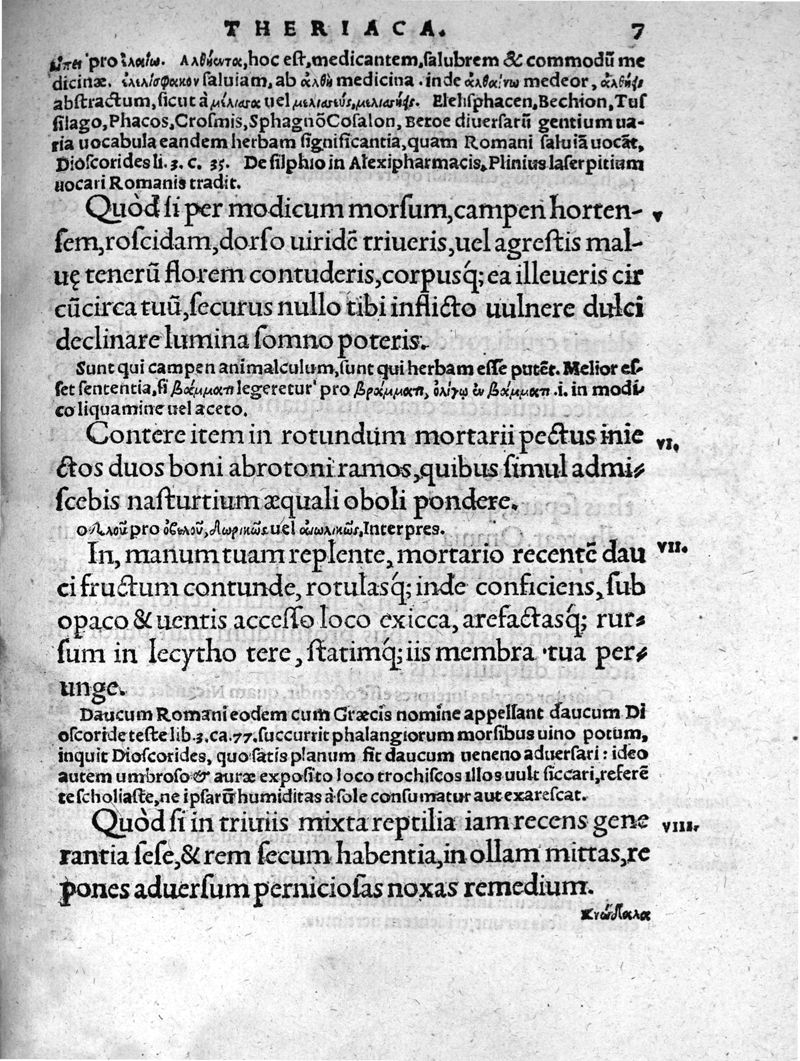 THERIACA. 7
pro ἐλαίῳ. Αλθήεντα, hoc eſt, medicantem, ſalubrem & commodū me
dicinæ. ἐλελίσφακον ſaluiam, ab ἄλθη medicina. inde ἀλθαίνω medeor,
abſtractum, ſicut à uel Elelisphacen, Bechion, Tuſ
ſilago, Phacos, Croſmis, Sphagnō Coſalon, Beroe diuerſarū gentium ua-
ria uocabula eandem herbam ſignificantia, quam Romani ſaluiā uocāt,
Dioſcorides li. 3. c. 35. De ſilphio in Alexipharmacis, Plinius laſerpitium
uocari Romanis tradit.
Quòd ſi per modicum morſum, campen horten- V
ſem, roſcidam, dorſo uiridē triueris, uel agreſtis mal-
uę tenerū florem contuderis, corpusq́; ea illeueris cir
cūcirca tuū, ſecurus nullo tibi inflicto uulnere dulci
declinare lumina ſomno poteris.
Sunt qui campen animalculum, ſunt qui herbam eſſe putēt. Melior eſ-
ſet ſententia, ſi βάμματι legeretur pro βράμματι, ὀλίγῳ ἐν βάμματι .i. in modi
co liquamine uel aceto.
Contere item in rotundum mortarii pectus inie VI.
ctos duos boni abrotoni ramos, quibus ſimul admi-
ſcebis naſturtium æquali oboli pondere.
ὀδελοῦ pro ὀβελοῦ, Δωρικῶς uel αἰολικῶς, Interpres.
In, manum tuam replente, mortario recentē dau VII.
ci fructum contunde, rotulasq́; inde conficiens, ſub
opaco & uentis acceſſo loco exicca, arefactasq́; rur-
ſum in lecytho tere, ſtatimq́; iis membra tua per-
unge.
Daucum Romani eodem cum Græcis nomine appellant daucum Di
oſcoride teſte lib. 3. ca. 77. ſuccurrit phalangiorum morſibus uino potum,
inquit Dioſcorides, quo ſatis planum fit daucum ueneno aduerſari: ideo
autem umbroſo & auræ expoſito loco trochiſcos illos uult ſiccari, referē
te ſcholiaſte, ne ipſarū humiditas à ſole conſumatur aut exareſcat.
Quòd ſi in triuiis mixta reptilia iam recens gene VIII.
rantia ſeſe, & rem ſecum habentia, in ollam mittas, re
pones aduerſum pernicioſas noxas remedium.
Κνώδαλα